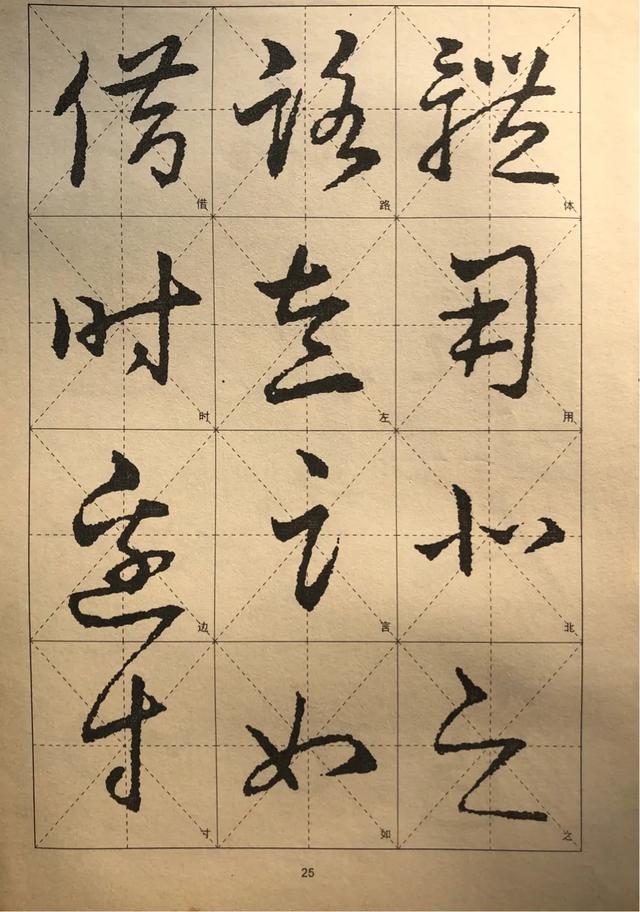 體用北之
体用北之
路左言如
路左言如
借时边寸
借时边寸
25